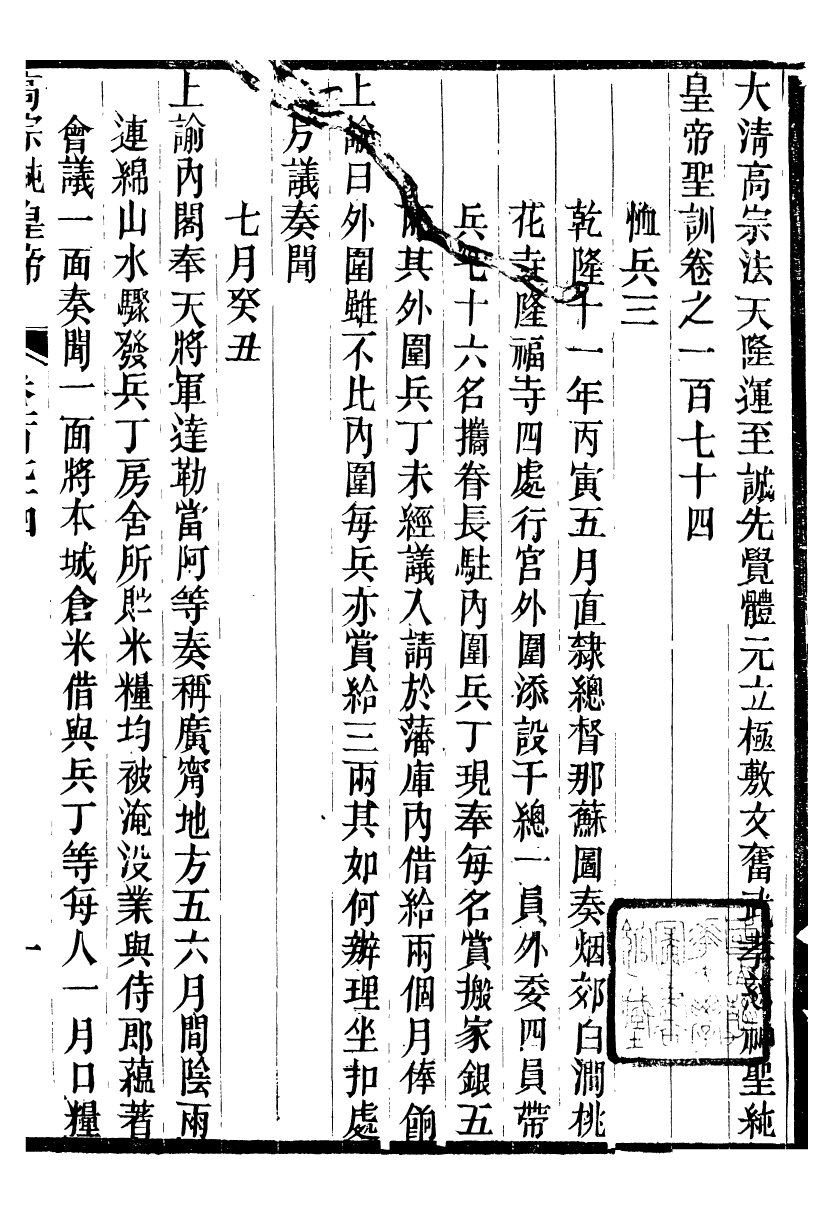 大清高宗法天隆運至誠先覺體元立極敷文奮武孝慈神聖純
皇帝聖訓卷之一百七十四
恤兵三
乾隆十一年丙寅五月直隸總督那蘇圖奏烟郊白澗桃
花寺隆福寺四處行宮外圍添設千總一員外委四員帶
兵七十六名攜眷長駐內圍兵丁現奉每名賞搬家銀五
兩其外圍兵丁未經議入請於藩庫內借給兩個月俸餉
上諭曰外圍雖不比內圍每兵亦賞給三兩其如何辦理坐扣處
另議奏聞
七月癸丑
上諭內閣奉天將軍達勒當阿等奏稱廣甯地方五六月間陰雨
連綿山水驟發兵丁房舍所貯米糧均被淹沒業與侍郎蘊著
會議一面奏聞一面將本城倉米借與兵丁等每人一月口糧
高宗純皇帝 一